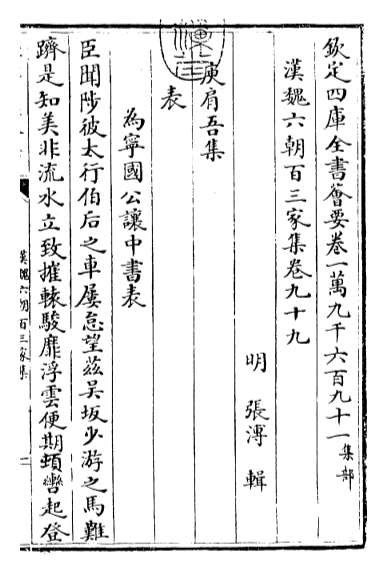 欽定四庫全書薈要卷一萬九千六百九十一集部
漢魏六朝百三家集卷九十九
明 張溥 輯
庾肩吾集
表
為寧國公讓中書表
臣聞陟彼太行伯后之車屢怠望茲吳坂少游之馬難
躋是知美非流水立致摧轅駿靡浮雲便期頓轡起登
漢魏六朝百三家集